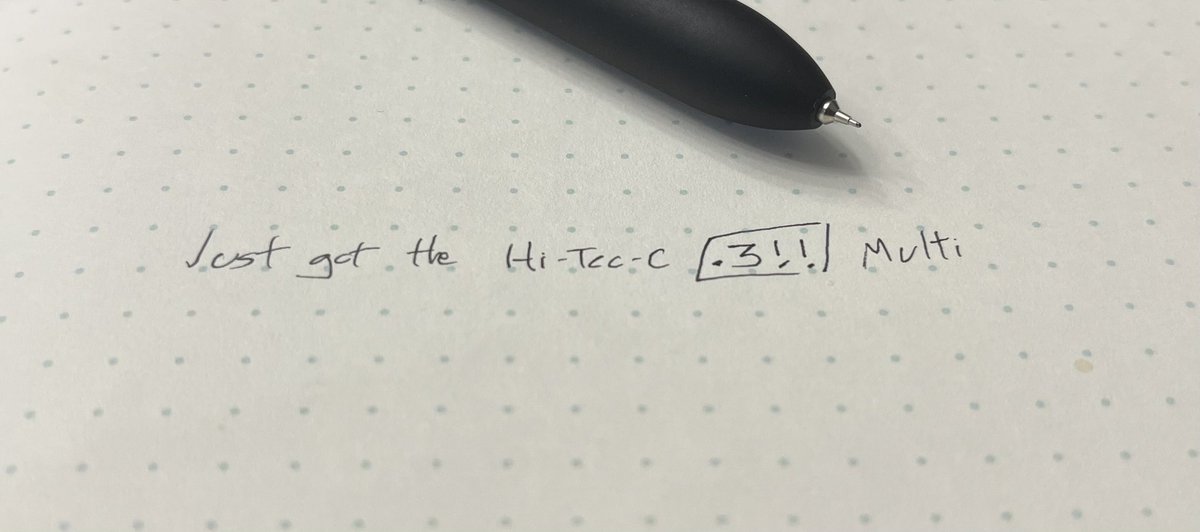 Just got the Hi-Tec-C .3!!! Multi